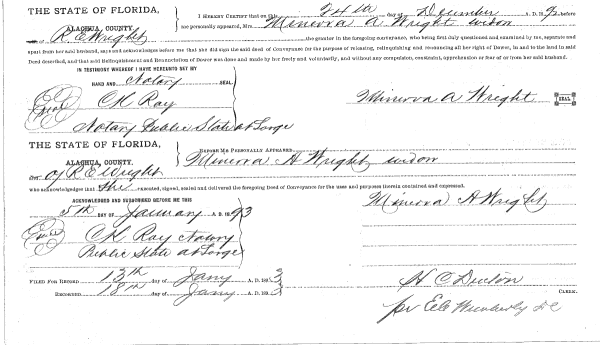 THE STATE OF FLORIDA,
ALACHUA, COUNTY.
I HEREBY CERTIFY that on this 24th day of December A. D. 1892 before
me personally appeared, Mrs. Minerva A. Wright widow
of R E Wright the grantor in the foregoing conveyance, who being first duly questioned and examined by me, separate and
apart from her said husband, says and acknowledges before me that she did sign the said deed of Conveyance for the purpose of releasing, relinquishing and renouncing all her right of Dower, in and to the land in said
Deed described, and that said Relinquishment and Renunciation of Dower was done and made by her freely and voluntarily, and without any compulsion, constraint, apprehension or fear of or from her said husband.
IN TESTIMONY WHEREOF I HAVE HEREUNTO SET BY
HAND AND Notary SEAL
C H Ray
Notary Public State at Large
Minerva A Wright SEAL
THE STATE OF FLORIDA,
ALACHUA, COUNTY.
BEFORE ME PERSONALLY APPEARED
Minerva A Wright widow
of R E Wright
who acknowledges that She executed, signed, sealed and delivered the foregoing deed of Conveyance for the uses and purposes therein contained and expressed.
ACKNOWLEDGED AND SUBSCRIBED BEFORE ME THIS
5th DAY OF January A. D. 1893
C H Ray Notary
Public State at Large
Minerva A Wright
FILED FOR RECORD 13th day of Jany A. D. 1893
RECORDED 18th day of Jany A. D. 1893
H C Denton CLERK.
pr